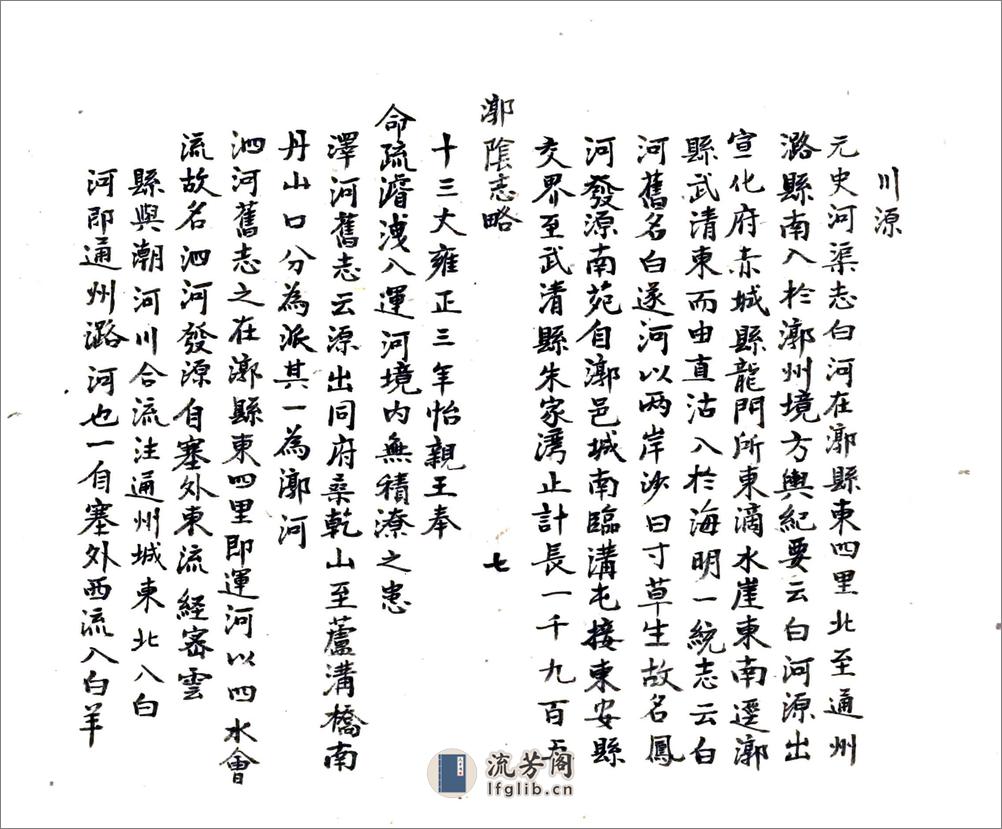 川源
元史河渠志白河在漷縣東四里北至通州
潞縣南入於漷州境方輿紀要云白河源出
宣化府赤城縣龍門所東滴水崖東南逕漷
縣武清東而由直沽入於海明一統志云白
河舊名白遂河以两岸沙白寸草生故名鳳
河發源南苑自漷邑城南臨溝屯接東安縣
交界至武清縣朱家灣止計長一千九百五
漷陰志略
七
十三丈雍正三年怡親王奉
命疏濬洩入運河境内無積潦之患
澤河舊志云源出同府桑乾山至蘆溝橋南
丹山口分為派其一為漷河
泗河舊志之在漷縣東四里即運河以四水會
流故名泗河發源自塞外東流經密雲
縣與潮河川合流注通州城東北入白
河即通州潞河也一自塞外西流入白羊
流芳阁
lfglib.cn